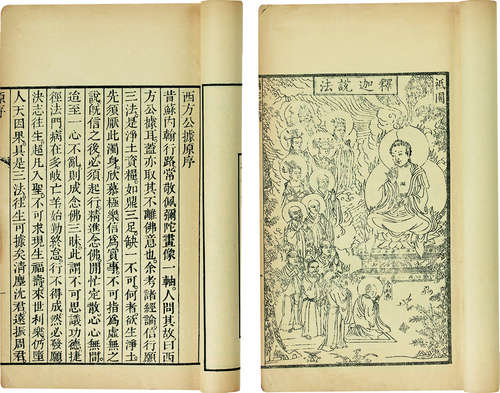 祇園
釋迦說法
西方公據原序
昔蘇內翰行路常敬佩彌陀畫像一軸人問其故曰西
方公據耳蓋亦取其不離佛意也余考諸經論信行願
三法是淨土資糧如鼎三足缺一不可何者欲生淨土
先須厭此濁身欣慕極樂信為實事不可指為虛無之
說旣信之後必須起行精進念佛閒忙定散心心無間
迨至一心不亂則成念佛三昧此謂不可思議功德捷
徑法門病在多岐亡羊始勤終怠行不得成然必發願
決志往生超凡入聖不可求現生福壽來世利樂仍墮
人天因果具是三法往生可據矣清塵沈君遠振周君
原序